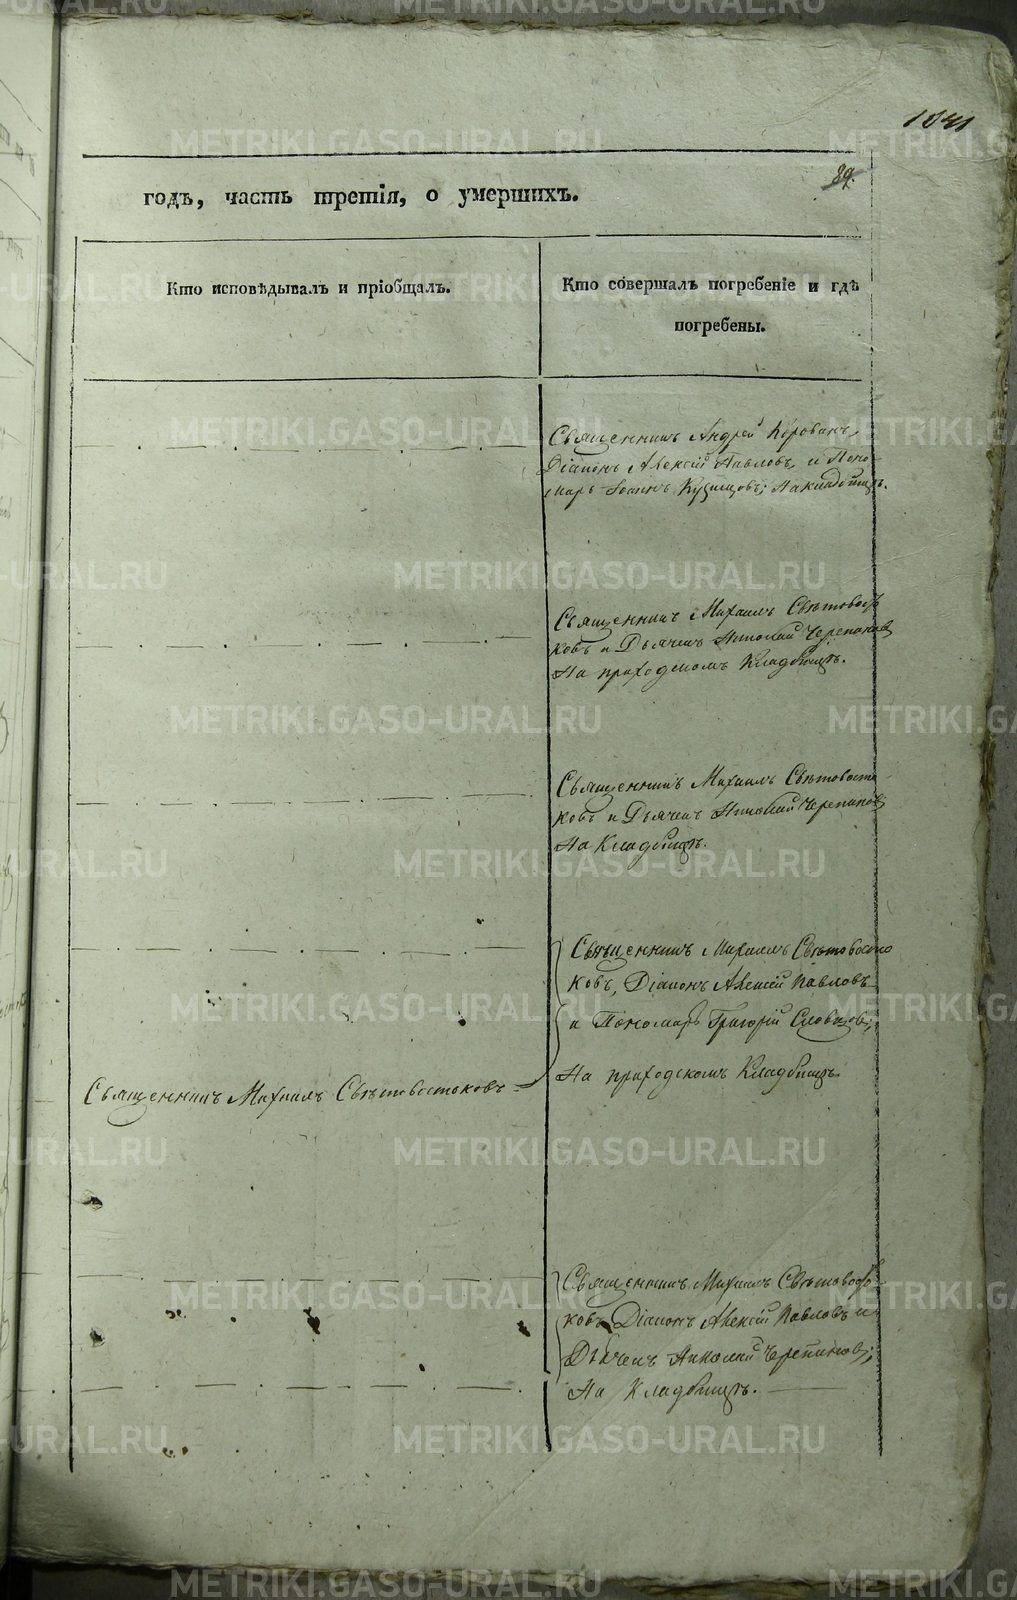 89.
годъ, часть третія, о умершихъ.
Кто исповѣдывалъ и пріобщалъ.
Кто совершалъ погребеніе и гдѣ
погребены.
Священникъ Андрей
Діаконъ Алексій Павловъ, и Поно-
марь Іоаннъ Кузнецовъ; На кладбищѣ.
Священникъ Михаилъ Свѣтовосто
ковъ и Дьячекъ Николай Черепановъ
На приходскомъ Кладбищѣ.
Священникъ Михаилъ Свѣтовосто
ковъ и Дьячекъ Николай Черепановъ
На Кладбищѣ.
Священникъ Михаилъ Свѣтовосто
ковъ, Діаконъ Алексій Павловъ
и Пономарь Григорій Словцовъ;
На приходскомъ Кладбищѣ
Священникъ Михаилъ Свѣтовостоковъ
Священникъ Михаилъ Свѣтовосто
ковъ, Діаконъ Алексій Павловъ и
Дьячекъ Николай Черепановъ;
На Кладбищѣ.
METRIKI.GASO-URAL.RU